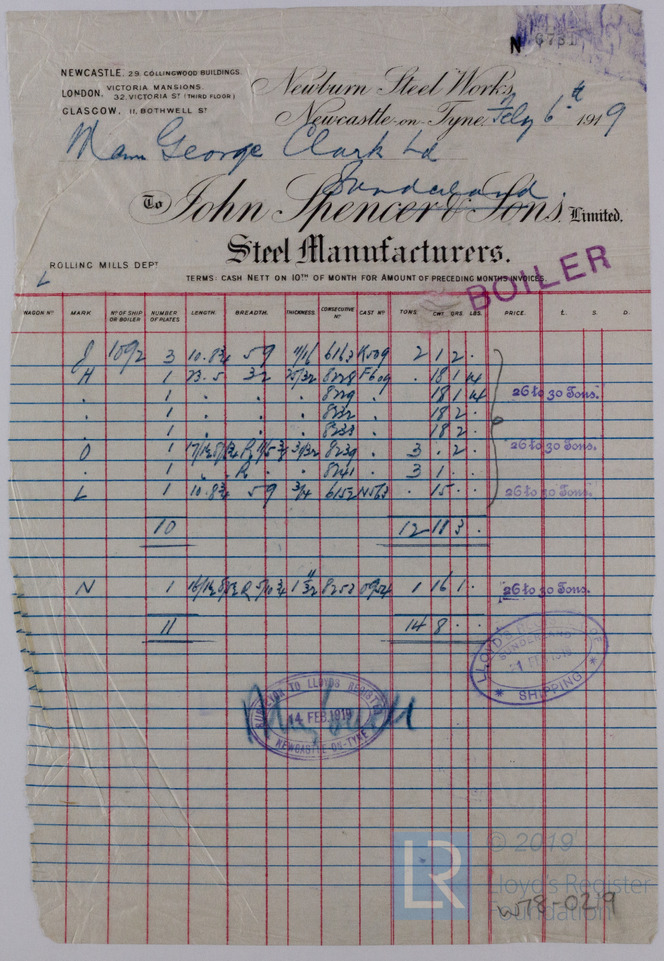 NEWCASTLE. 29 COLLINGWOOD BUILDINGS.
LONDON. VICTORIA MANSIONS.
32, VICTORIA ST (THIRD FLOOR)
GLASGOW. 11, BOTHWELL ST
Newburn Steel Works,
Newcastle-on-Tyne, Feby 6th 1919
George Clark Ld
Sunderland
To John Spencer & Sons, Limited.
Steel Manufacturers.
ROLLING MILLS DEPT
TERMS: CASH NETT ON 10TH OF MONTH FOR AMOUNT OF PRECEDING MONTHS INVOICES.
BOILER
WAGON No MARK No OF SHIP OR BOILER NUMBER OF PLATES. LENGTH. BREADTH. THICKNESS. CONSECUTIVE No CAST No TONS. CWT QRS. LBS. PRICE. £. S. D.
J 1092 3 10.8¾ 59 11/16 2 1 2 .
H 1 23.5 32 25/32 8228 . 18 1 14
. 1 . . . 8229 . 18 1 14 26 to 30 Tons.
. 1 . . . 8232 . 18 2 .
. 1 . . . 8238 . 18 2 .
O 1 31/32 8239 . 3 . 2 . 26 to 30 Tons.
. 1 R 8241 . 3 1 . .
L 1 10.8¾ 59 3/4 6152 . 15 . . 26 to 30 Tons.
10 12 11 3 .
N 1 1 3/32 8253 1 16 1 . 26 to 30 Tons.
11 14 8 . .
LLOYD'S REGISTER OF SHIPPING
SUNDERLAND
FEB 1919
SURVEYOR TO LLOYDS REGISTER
14 FEB. 1919
NEWCASTLE-ON-TYNE
LR
© 2019
Lloyd's Register
Foundation
W78-0219